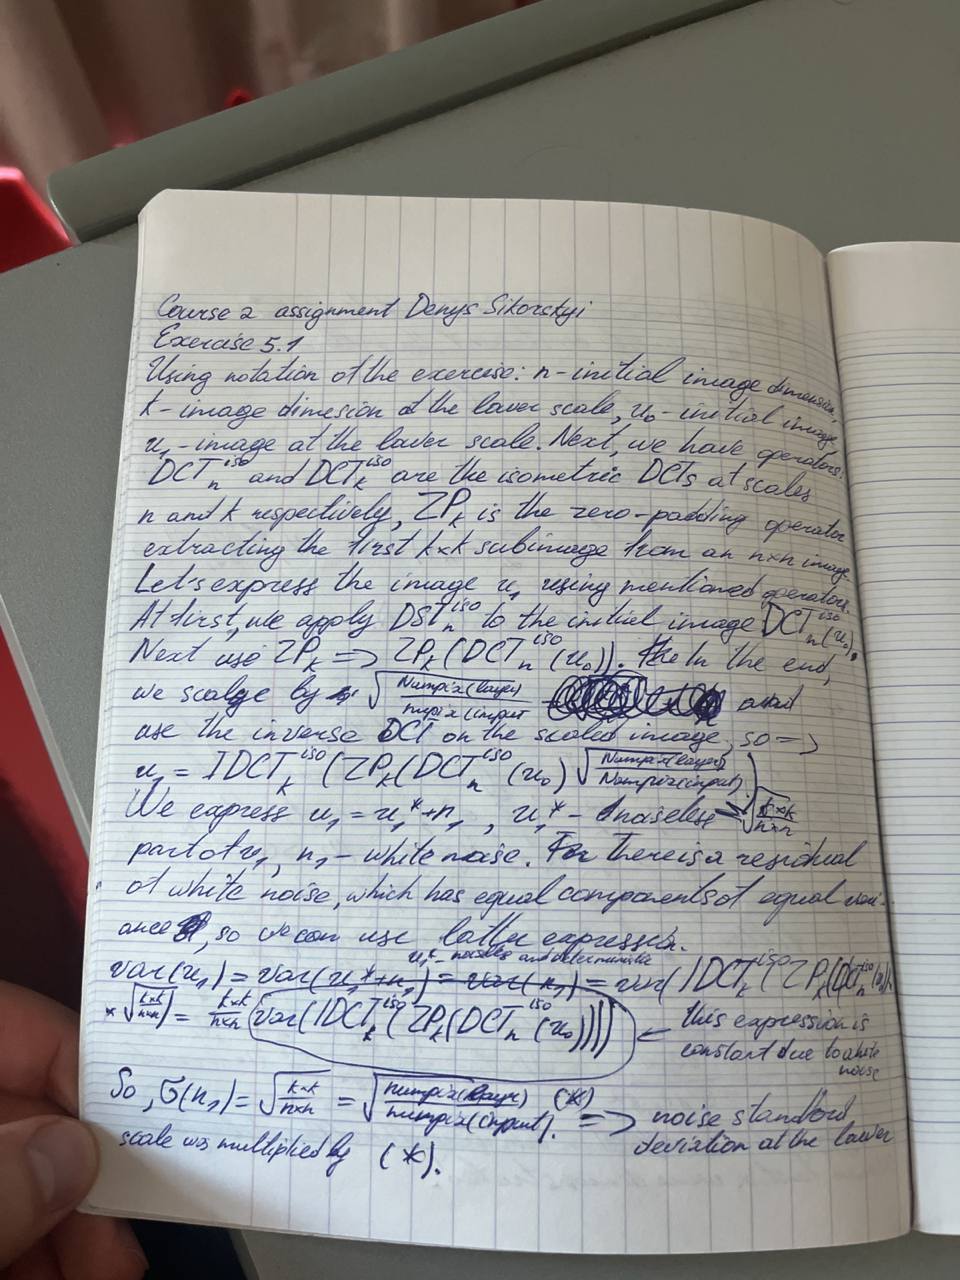 Course 2 assignment Denys Sikorskyi
Exercise 5.1
Using notation of the exercise: n-initial image dimension,
k-image dimesion at the lawer scale, u₀-initial image
u₁-image at the lawer scale. Next, we have operators:
DCTₙ^iso and DCTₖ^iso are the isometric DCTs at scales
n and k respectively, ZPₖ is the zero-padding operator
extracting the first k×k subimage from an n×n image.
Let's express the image u₁ using mentioned operators.
At first, we apply DSTₙ^iso to the initial image DCTₙ^iso(u₀).
Next use ZPₖ => ZPₖ(DCTₙ^iso(u₀)). In the end,
we scale by √(Numpix(layer)/numpix(input) and
use the inverse DCT on the scaled image, so =>
u₁ = IDCTₖ^iso(ZPₖ(DCTₙ^iso(u₀)√(Numpix(layer)/Numpix(input))
We express u₁ = u₁*+n₁, u₁* - noiseless √(k×k/n×n)
part of u₁, n₁ - white noise. There is a residual
of white noise, which has equal components of equal vari-
ance, so we can use latter expression.
u₁* - noiseless and deterministic
var(u₁) = var(u₁*+n₁) = var(n₁) = var(IDCTₖ^iso(ZPₖ(DCTₙ^iso(u₀)
* √(k×k/n×n)) = k×k/n×n (var(IDCTₖ^iso(ZPₖ(DCTₙ^iso(u₀)))) ← this expression is
constant due to white
noise
So, σ(n₁) = √(k×k/n×n) = √(numpix(layer)/numpix(input)). (*) => noise standard
deviation at the lawer
scale was multiplied by (*).